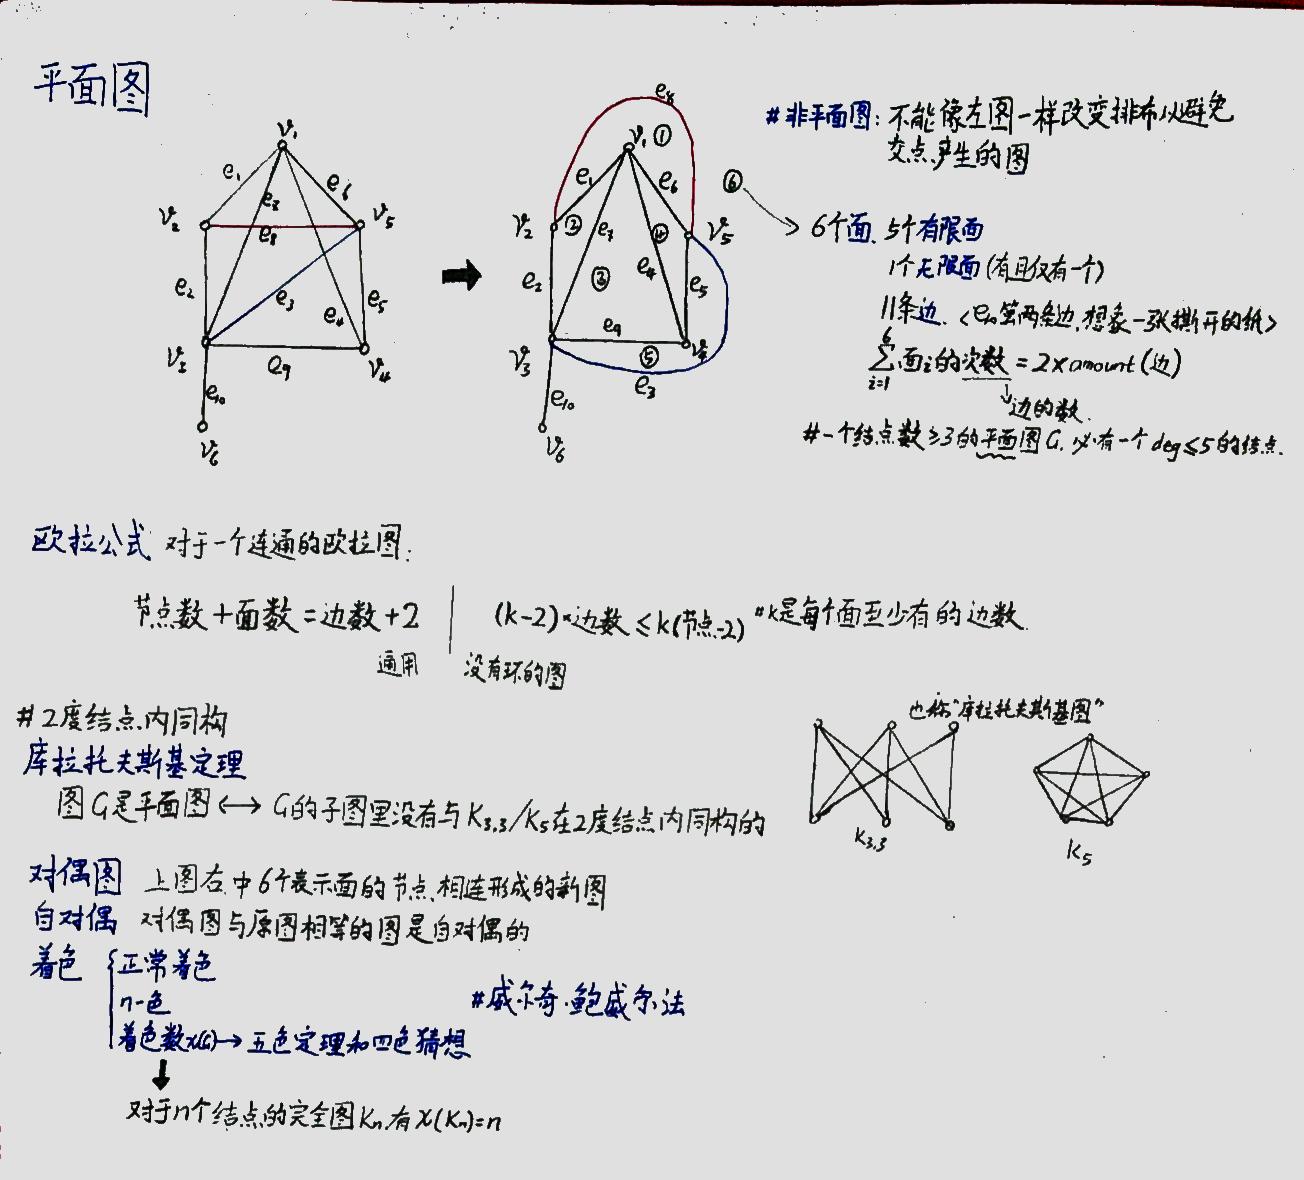 平面图
v₁
e₁
e₇
e₆
v₂
e₈
v₅
e₂
e₃
e₄
e₅
v₃
e₉
v₄
e₁₀
v₆
e₈
v₁
①
e₁
e₆
v₂
②
e₇
④
v₅
e₂
③
e₄
e₅
e₉
v₃
⑤
v₄
e₃
e₁₀
v₆
⑥
#非平面图: 不能像左图一样改变排布以避免
交点产生的图
6个面、5个有限面
1个无限面(有且仅有一个)
11条边、<e₁₀算两条边,想象一张撕开的纸>
∑⁶ᵢ₌₁ 面i的次数 = 2×amount(边)
边的数.
#一个结点数≥3的平面图G, 必有一个deg≤5的结点.
欧拉公式 对于一个连通的欧拉图:
节点数+面数=边数+2
(k-2)×边数≤k(节点-2) #k是每个面至少有的边数.
通用
没有环的图
#2度结点内同构
也称"库拉托夫斯基图"
库拉托夫斯基定理
图G是平面图↔G的子图里没有与K₃,₃/K₅在2度结点内同构的
K₃,₃
K₅
对偶图 上图右中6个表示面的节点相连形成的新图
自对偶 对偶图与原图相等的图是自对偶的
着色 {正常着色
n-色
#威尔奇·鲍威尔法
着色数x(G)→五色定理和四色猜想
对于n个结点的完全图Kn,有x(Kn)=n